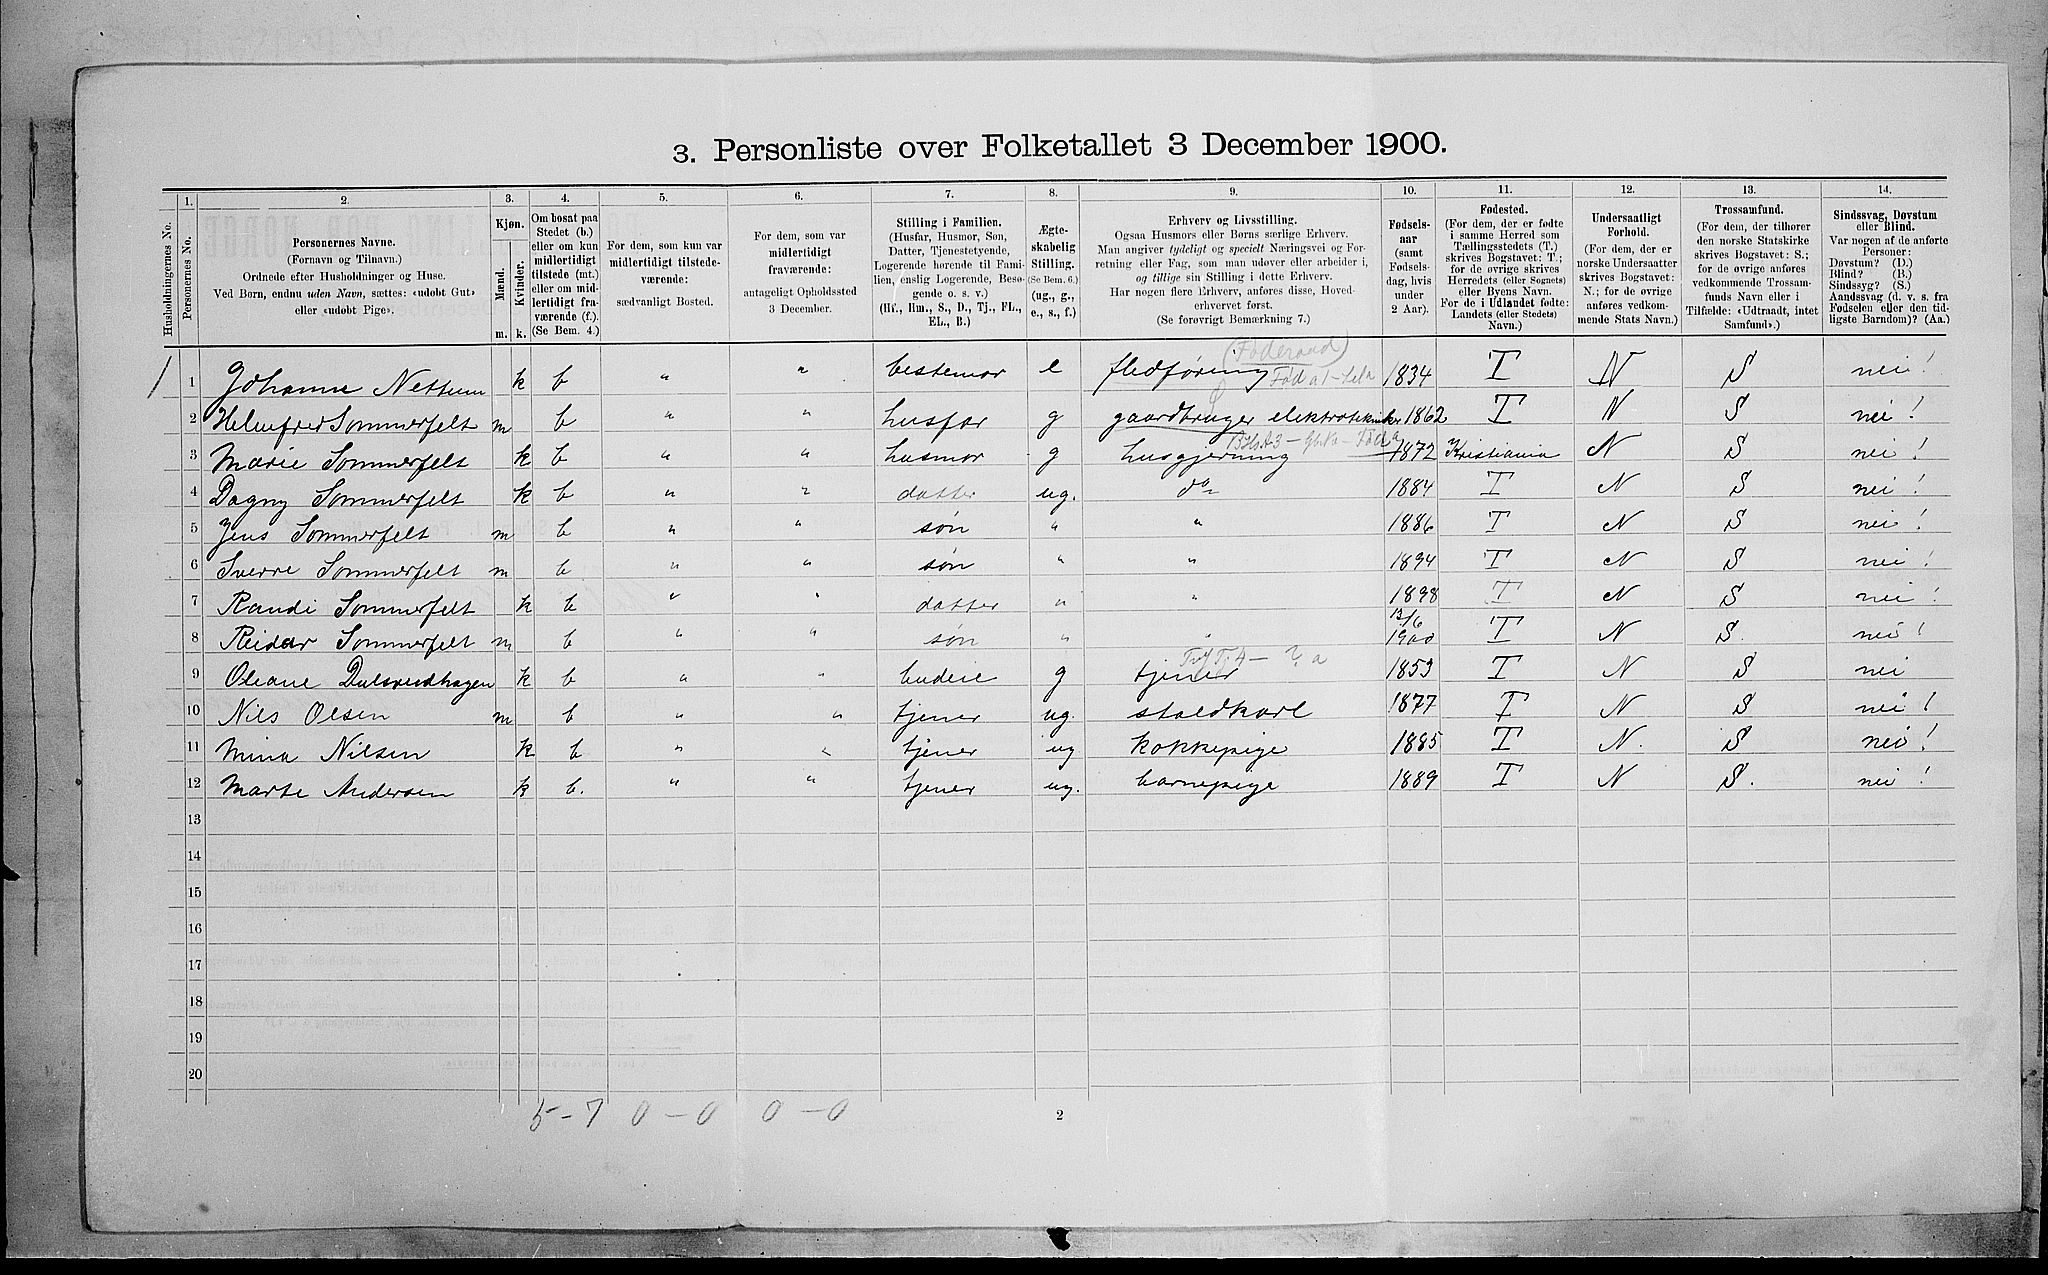 3. Personliste over Folketallet 3 December 1900.
Husholdningernes No.
1. Personernes No.
2. Personernes Navne.
(Fornavn og Tilnavn.)
Ordnede efter Husholdninger og Huse.
Ved Børn, endnu uden Navn, sættes: «udøbt Gut»
eller «udøbt Pige».
3. Kjøn.
Mænd. m.
Kvinder. k.
4. Om bosat paa
Stedet (b.)
eller om kun
midlertidigt
tilstede (mt.)
eller om mid-
lertidigt fra-
værende (f.).
(Se Bem. 4.)
5. For dem, som kun var
midlertidigt tilstede-
værende:
sædvanligt Bosted.
6. For dem, som var
midlertidigt
fraværende:
antageligt Opholdssted
3 December.
7. Stilling i Familien.
(Husfar, Husmor, Søn,
Datter, Tjenestetyende,
Logerende hørende til Fami-
lien, enslig Logerende, Besø-
gende o. s. v.)
(Hf., Hm., S., D., Tj., FL.,
EL., B.)
8. Ægte-
skabelig
Stilling.
(Se Bem. 6.)
(ug., g.,
e., s., f.)
9. Erhverv og Livsstilling.
Ogsaa Husmors eller Børns særlige Erhverv.
Man angiver tydeligt og specielt Næringsvei og For-
retning eller Fag, som man udøver eller arbeider i,
og tillige sin Stilling i dette Erhverv.
Har nogen flere Erhverv, anføres disse, Hoved-
erhvervet først.
(Se forøvrigt Bemærkning 7.)
10. Fødsels-
aar
(samt
Fødsels-
dag, hvis
under
2 Aar).
11. Fødested.
(For dem, der er fødte
i samme Herred som
Tællingsstedets (T.)
skrives Bogstavet: T.;
for de øvrige skrives
Herredets (eller Sognets)
eller Byens Navn.
For de i Udlandet fødte:
Landets (eller Stedets)
Navn.)
12. Undersaatligt
Forhold.
(For dem, der er
norske Undersaatter
skrives Bogstavet:
N.; for de øvrige
anføres vedkom-
mende Stats Navn.)
13. Trossamfund.
(For dem, der tilhører
den norske Statskirke
skrives Bogstavet: S.;
for de øvrige anføres
vedkommende Trossam-
funds Navn eller i
Tilfælde: «Udtraadt, intet
Samfund».)
14. Sindssvag, Døvstum
eller Blind.
Var nogen af de anførte
Personer:
Døvstum? (D.)
Blind? (B.)
Sindssyg? (S.)
Aandssvag (d. v. s. fra
Fødselen eller den tid-
ligste Barndom)? (Aa.)
(Føderaad)
1 1 Johanne Nettum k b " " bestemor e fledføring 1834 T N S nei!
2 Helmfred Sommerfelt m b " " husfar g gaardbruger elektrotekniker 1862 T N S nei!
3 Marie Sommerfelt k b " " husmor g husgjerning 1872 Kristiania N S nei!
4 Dagny Sommerfelt k b " " datter ug. do 1884 T N S nei!
5 Jens Sommerfelt m b " " søn " " 1886 T N S nei!
6 Sverre Sommerfelt m b " " søn " " 1894 T N S nei!
7 Randi Sommerfelt k b " " datter " " 1898 T N S nei!
8 Reidar Sommerfelt m b " " søn " " 13/6 1900 T N S. nei!
9 Oleane k b " " budeie g tjener 1853 T N S nei
10 Nils Olsen m b " " tjener ug. staldkarl 1877 T N S nei!
11 Mina Nilsen k b " " tjener ug kokkepige 1885 T N. S nei!
12 Marte Andersen k b. " " tjener ug. barnepige 1889 T N S. nei!
13
14
15
16
17
18
19
20
5-7 0-0 0-0
2